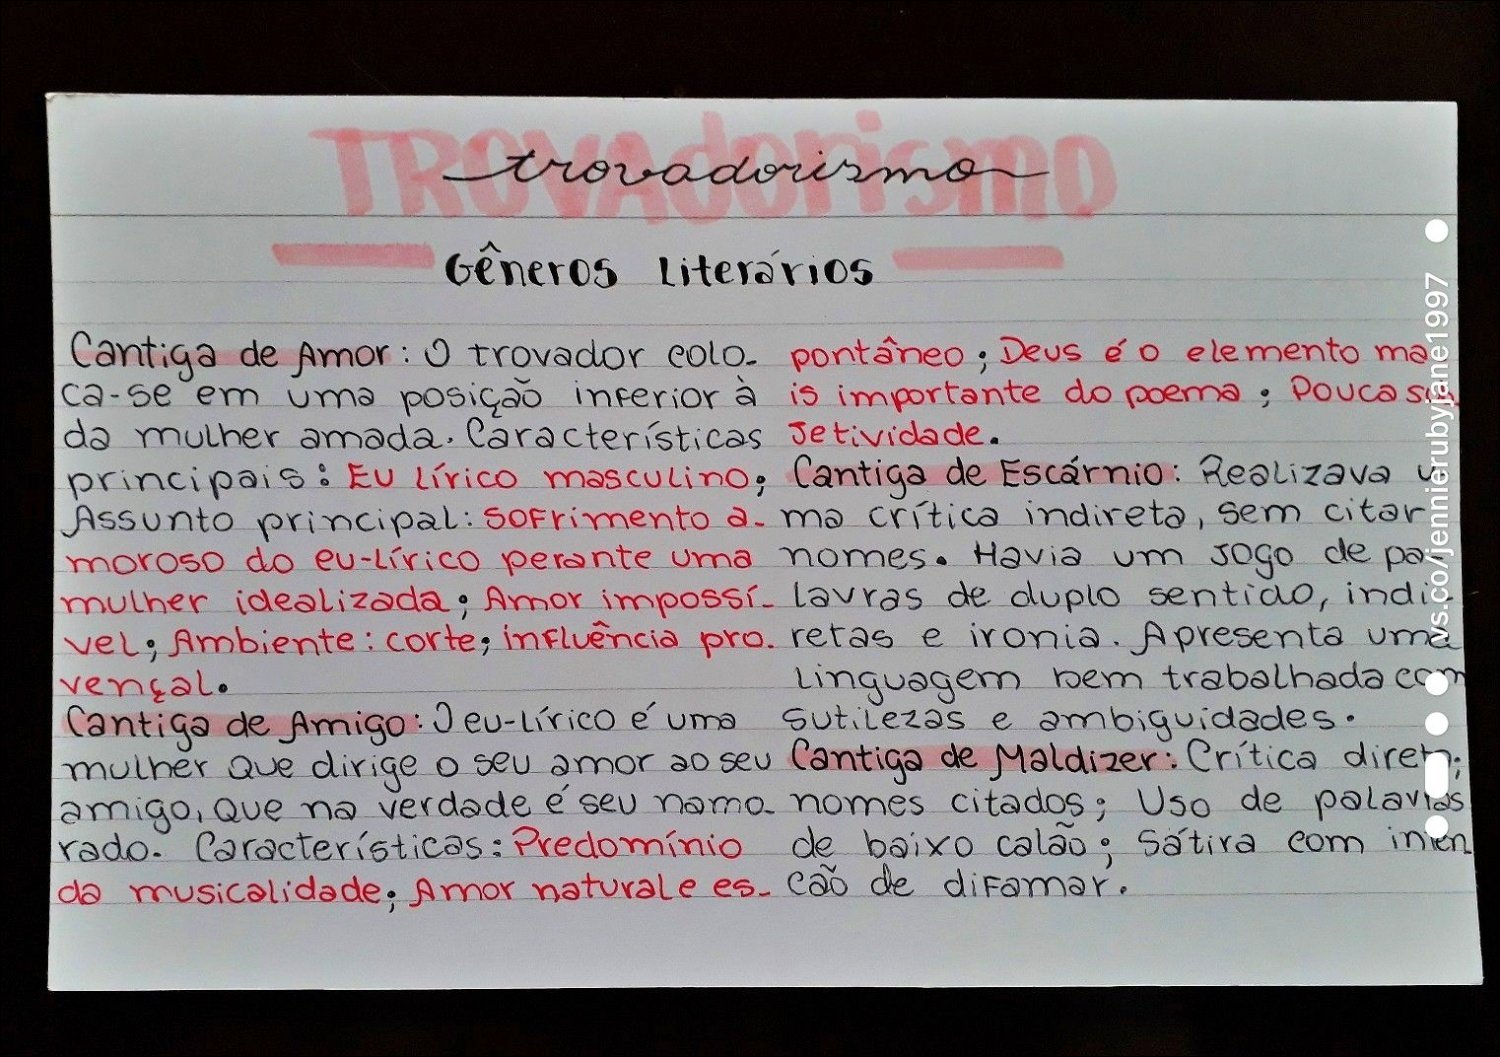 TROVAdorismo
trovadorismo
Gêneros Literários
Cantiga de Amor: O trovador colo-
ca-se em uma posição inferior à
da mulher amada. Características
principais: Eu lírico masculino;
Assunto principal: sofrimento a-
moroso do eu-lírico perante uma
mulher idealizada; Amor impossí-
vel; Ambiente: corte; influência pro-
vençal.
Cantiga de Amigo: O eu-lírico é uma
mulher que dirige o seu amor ao seu
amigo, que na verdade é seu namo-
rado. Características: Predomínio
da musicalidade; Amor natural e es-
pontâneo; Deus é o elemento ma
is importante do poema; Pouca su
jetividade.
Cantiga de Escárnio: Realizava u
ma crítica indireta, sem citar
nomes. Havia um jogo de pa-
lavras de duplo sentido, indi
retas e ironia. Apresenta uma
linguagem bem trabalhada com
sutilezas e ambiguidades.
Cantiga de Maldizer: Crítica direta;
nomes citados; Uso de palavras
de baixo calão; Sátira com inten
cão de difamar.
vs.co/jennierubyjane1997